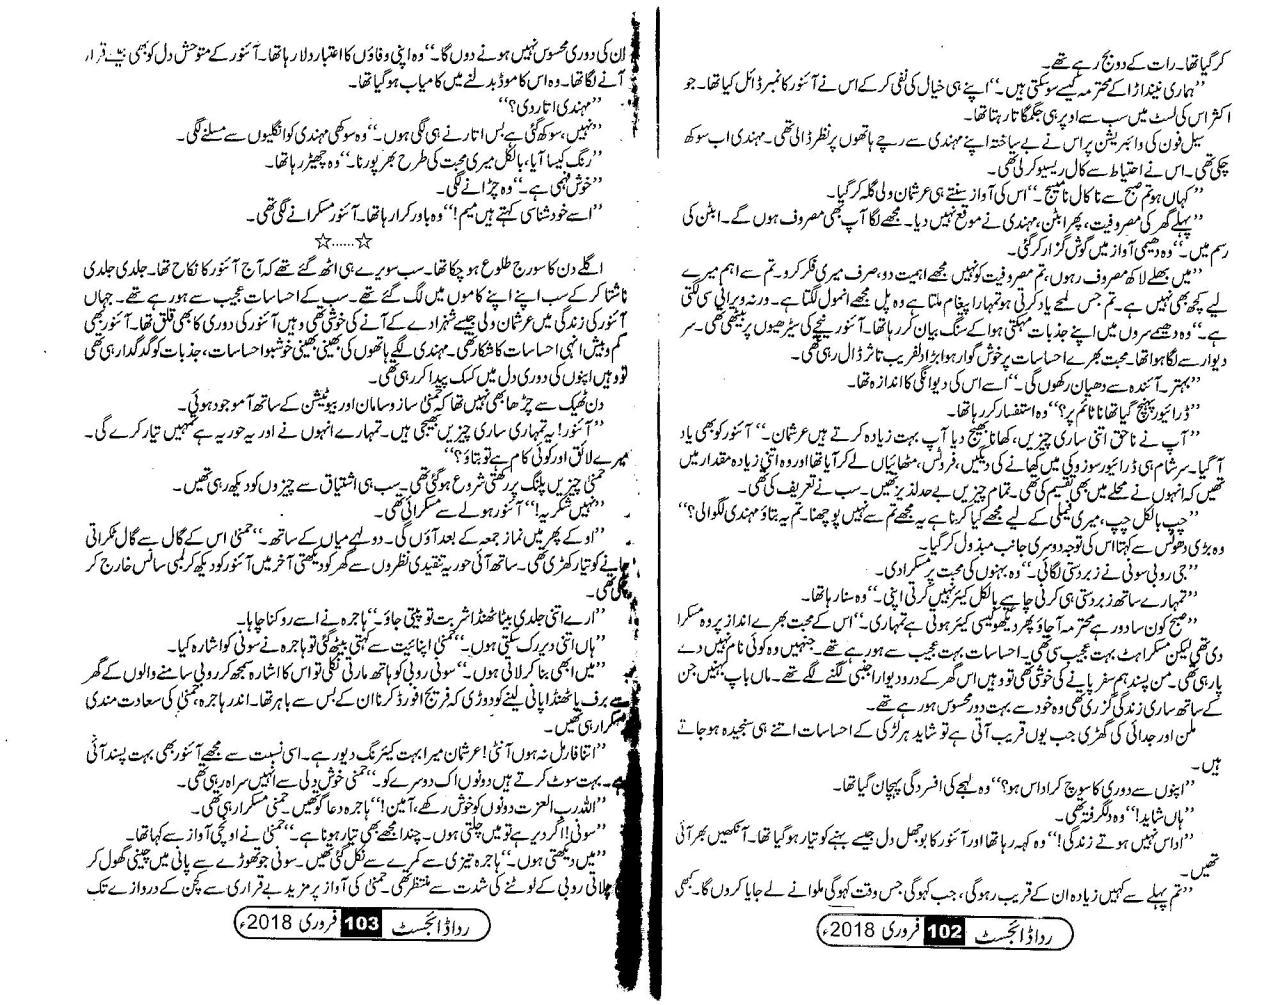 کر گیا تھا۔ رات کے دو بج رہے تھے۔
’’ہماری نیند اڑا کے محترمہ کیسے سو سکتی ہیں۔‘‘ اپنے ہی خیال کی نفی کر کے اس نے آئنور کا نمبر ڈائل کیا تھا۔ جو
اکثر اس کی لسٹ میں سب سے اوپر ہی جگمگاتا رہتا تھا۔
سیل فون کی وائبریشن پر اس نے بے ساختہ اپنے مہندی سے رچے ہاتھوں پر نظر ڈالی تھی۔ مہندی اب سوکھ
چکی تھی۔ اس نے احتیاط سے کال ریسیو کر لی تھی۔
’’کہاں ہو تم صبح سے نا کال نا میسج۔‘‘ اس کی آواز سنتے ہی عرشمان ولی گلہ کر گیا۔
’’پہلے گھر کی مصروفیت، پھر ابٹن، مہندی نے موقع نہیں دیا۔ مجھے لگا آپ بھی مصروف ہوں گے۔ ابٹن کی
رسم میں۔‘‘ وہ دھیمی آواز میں گوش گزار کر گئی۔
’’میں بھلے لاکھ مصروف رہوں، تم مصروفیت کو نہیں مجھے اہمیت دو، صرف میری فکر کرو۔ تم سے اہم میرے
لیے کچھ بھی نہیں ہے۔ تم جس لمحے یاد کرتی ہو تمہارا پیغام ملتا ہے وہ پل مجھے انمول لگتا ہے۔ ورنہ ویرانی سی لگتی
ہے۔‘‘ وہ دھیمے سروں میں اپنے جذبات مہکتی ہوا کے سنگ بیان کر رہا تھا۔ آئنور نیچے کی سیڑھیوں پر بیٹھی تھی۔ سر
دیوار سے لگا ہوا تھا۔ محبت بھرے احساسات پر خوش گوار ہوا بڑا دلفریب تاثر ڈال رہی تھی۔
’’بہتر۔ آئندہ سے دھیان رکھوں گی۔‘‘ اسے اس کی دیوانگی کا اندازہ تھا۔
’’ڈرائیور پہنچ گیا تھا نا ٹائم پر؟‘‘ وہ استفسار کر رہا تھا۔
’’آپ نے ناحق اتنی ساری چیزیں، کھانا بھیج دیا آپ بہت زیادہ کرتے ہیں عرشمان۔‘‘ آئنور کو بھی یاد
آ گیا۔ سر شام ہی ڈرائیور سوزوکی میں کھانے کی دیگیں، فروٹس، مٹھائیاں لے کر آیا تھا اور وہ اتنی زیادہ مقدار میں
تھیں کہ انہوں نے محلے میں بھی تقسیم کی تھی۔ تمام چیزیں بے حد لذیز تھیں۔ سب نے تعریف کی تھی۔
’’چپ بالکل چپ، میری فیملی کے لیے مجھے کیا کرنا ہے یہ مجھے تم سے نہیں پوچھنا۔ تم یہ بتاؤ مہندی لگوا لی؟‘‘
وہ بڑی دھونس سے کہتا اس کی توجہ دوسری جانب مبذول کر گیا۔
’’جی روبی سونی نے زبردستی لگائی۔‘‘ وہ بہنوں کی محبت پر مسکرا دی۔
’’تمہارے ساتھ زبردستی ہی کرنی چاہیے بالکل کیئر نہیں کرتی اپنی۔‘‘ وہ سنا رہا تھا۔
’’صبح کون سا دور ہے محترمہ آ جاؤ پھر دیکھو کیسی کیئر ہوتی ہے تمہاری۔‘‘ اس کے محبت بھرے انداز پر وہ مسکرا
دی تھی لیکن مسکراہٹ بہت عجیب سی تھی۔ احساسات بہت عجیب سے ہو رہے تھے۔ جنہیں وہ کوئی نام نہیں دے
پا رہی تھی۔ من پسند ہم سفر پانے کی خوشی تھی تو وہیں اس گھر کے در و دیوار اجنبی لگنے لگے تھے۔ ماں باپ بہنیں جن
کے ساتھ ساری زندگی گزری تھی وہ خود سے بہت دور محسوس ہو رہے تھے۔
ملن اور جدائی کی گھڑی جب یوں قریب آتی ہے تو شاید ہر لڑکی کے احساسات اتنے ہی سنجیدہ ہو جاتے
ہیں۔
’’اپنوں سے دوری کا سوچ کر اداس ہو؟‘‘ وہ لہجے کی افسردگی پہچان گیا تھا۔
’’ہاں شاید!‘‘ وہ دلگرفتہ تھی۔
’’اداس نہیں ہوتے زندگی!‘‘ وہ کہہ رہا تھا اور آئنور کا بوجھل دل جیسے بہنے کو تیار ہو گیا تھا۔ آنکھیں بھر آئی
تھیں۔
’’تم پہلے سے کہیں زیادہ ان کے قریب رہو گی، جب کہو گی جس وقت کہو گی ملوانے لے جایا کروں گا۔ کبھی
ردا ڈائجسٹ 102 فروری 2018ء
ان کی دوری محسوس نہیں ہونے دوں گا۔‘‘ وہ اپنی وفاؤں کا اعتبار دلا رہا تھا۔ آئنور کے متوحش دل کو بھی جیسے قرار
آنے لگا تھا۔ وہ اس کا موڈ بدلنے میں کامیاب ہو گیا تھا۔
’’مہندی اتار دی؟‘‘
’’نہیں، سوکھ گئی ہے بس اتارنے ہی لگی ہوں۔‘‘ وہ سوکھی مہندی کو انگلیوں سے مسلنے لگی۔
’’رنگ کیسا آیا، بالکل میری محبت کی طرح بھرپور نا۔‘‘ وہ چھیڑ رہا تھا۔
’’خوش فہمی ہے۔‘‘ وہ چڑانے لگی۔
’’اسے خود شناسی کہتے ہیں میم!‘‘ وہ باور کرا رہا تھا۔ آئنور مسکرانے لگی تھی۔
☆......☆
اگلے دن کا سورج طلوع ہو چکا تھا۔ سب سویرے ہی اٹھ گئے تھے کہ آج آئنور کا نکاح تھا۔ جلدی جلدی
ناشتا کر کے سب اپنے اپنے کاموں میں لگ گئے تھے۔ سب کے احساسات عجیب سے ہو رہے تھے۔ جہاں
آئنور کی زندگی میں عرشمان ولی جیسے شہزادے کے آنے کی خوشی تھی وہیں آئنور کی دوری کا بھی قلق تھا۔ آئنور بھی
کم و بیش انہی احساسات کا شکار تھی۔ مہندی لگے ہاتھوں کی بھینی بھینی خوشبو احساسات، جذبات کو گدگدا رہی تھی
تو وہیں اپنوں کی دوری دل میں کسک پیدا کر رہی تھی۔
دن ٹھیک سے چڑھا بھی نہیں تھا کہ حمنیٰ ساز و سامان اور بیوٹیشن کے ساتھ آ موجود ہوئی۔
’’آئنور! یہ تمہاری ساری چیزیں بھیجی ہیں۔ تمہارے انہوں نے اور یہ حوریہ ہے تمہیں تیار کرے گی۔
میرے لائق اور کوئی کام ہے تو بتاؤ؟‘‘
حمنیٰ چیزیں پلنگ پر رکھتی شروع ہو گئی تھی۔ سب ہی اشتیاق سے چیزوں کو دیکھ رہی تھیں۔
’’نہیں شکریہ!‘‘ آئنور ہولے سے مسکرائی تھی۔
’’او کے پھر میں نماز جمعہ کے بعد آؤں گی۔ دولہے میاں کے ساتھ۔‘‘ حمنیٰ اس کے گال سے گال ٹکراتی
جانے کو تیار کھڑی تھی۔ ساتھ آئی حوریہ تنقیدی نظروں سے گھر کو دیکھتی آخر میں آئنور کو دیکھ کر لمبی سانس خارج کر
گئی تھی۔
’’ارے اتنی جلدی بیٹا ٹھنڈا شربت تو پیتی جاؤ۔‘‘ ہاجرہ نے اسے روکنا چاہا۔
’’ہاں اتنی دیر رک سکتی ہوں۔‘‘ حمنیٰ اپنائیت سے کہتی بیٹھ گئی تو ہاجرہ نے سونی کو اشارہ کیا۔
’’میں ابھی بنا کر لاتی ہوں۔‘‘ سونی روبی کو ہاتھ مارتی نکلی تو اس کا اشارہ سمجھ کر روبی سامنے والوں کے گھر
سے برف یا ٹھنڈا پانی لینے کو دوڑی کہ فریج افورڈ کرنا ان کے بس سے باہر تھا۔ اندر ہاجرہ، حمنیٰ کی سعادت مندی
مسکرا رہی تھیں۔
’’اتنا فارمل نہ ہوں آنٹی! عرشمان میرا بہت کیئرنگ دیور ہے۔ اسی نسبت سے مجھے آئنور بھی بہت پسند آئی
ہے۔ بہت سوٹ کرتے ہیں دونوں اک دوسرے کو۔‘‘ حمنیٰ خوش دلی سے انہیں سراہ رہی تھی۔
’’اللہ رب العزت دونوں کو خوش رکھے، آمین!‘‘ ہاجرہ دعا گو تھیں۔ حمنیٰ مسکرا رہی تھی۔
’’سونی! اگر دیر ہے تو میں چلتی ہوں۔ چندا مجھے بھی تیار ہونا ہے۔‘‘ حمنیٰ نے اونچی آواز سے کہا تھا۔
’’میں دیکھتی ہوں۔‘‘ ہاجرہ تیزی سے کمرے سے نکل گئی تھیں۔ سونی جو تھوڑے سے پانی میں چینی گھول کر
چلاتی روبی کے لوٹنے کی شدت سے منتظر تھی۔ حمنیٰ کی آواز پر مزید بے قراری سے کچن کے دروازے تک
ردا ڈائجسٹ 103 فروری 2018ء